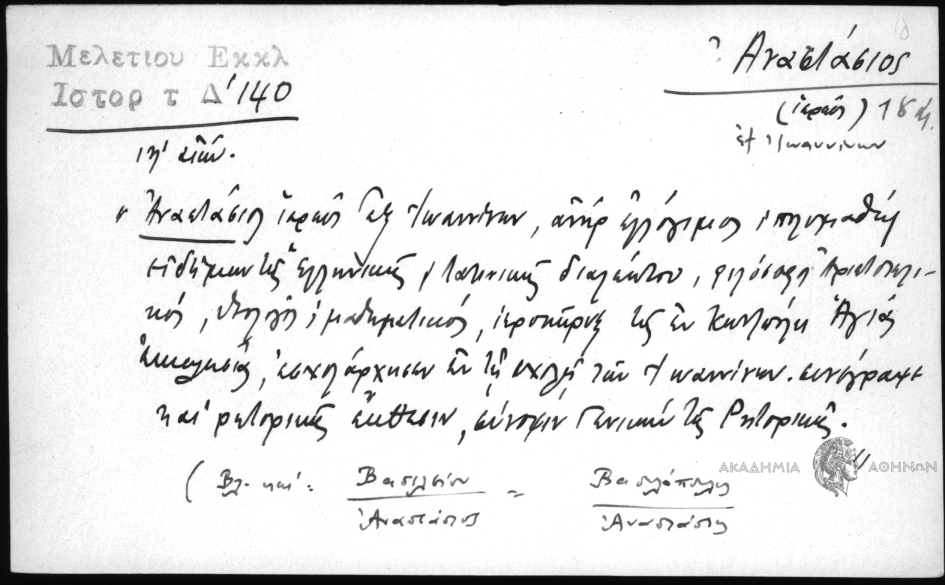 Μελετιου Εκκλ
Ιστορ τ Δ' 140
Ἀναστάσιος
(ἱερεὺς) 18 αἰ.
ἐξ Ἰωαννίνων
ιη' αἰών.
"Ἀναστάσιος ἱερεὺς ἐξ Ἰωαννίνων, ἀνὴρ ἐλλόγιμος, πολυμαθὴς
εἰδήμων τῆς ἑλληνικῆς, λατινικῆς διαλέκτου, φιλόσοφος Ἀριστοτελι-
κός, θεολόγος, μαθηματικός, ἱεροκῆρυξ τῆς ἐν Κων/πόλει Ἁγίας
Ἐκκλησίας, ἐσχολάρχησεν ἐν τῇ σχολῇ τῶν Ἰωαννίνων. συνέγραψε
καὶ ρητορικῆς ἔκθεσιν, σύνοψιν Γενικὴν τῆς Ρητορικῆς."
(Βλ. καί: Βασιλείου = Βασιλόπουλος
Ἀναστάσιος Ἀναστάσιος
ΑΚΑΔΗΜΙΑ ΑΘΗΝΩΝ